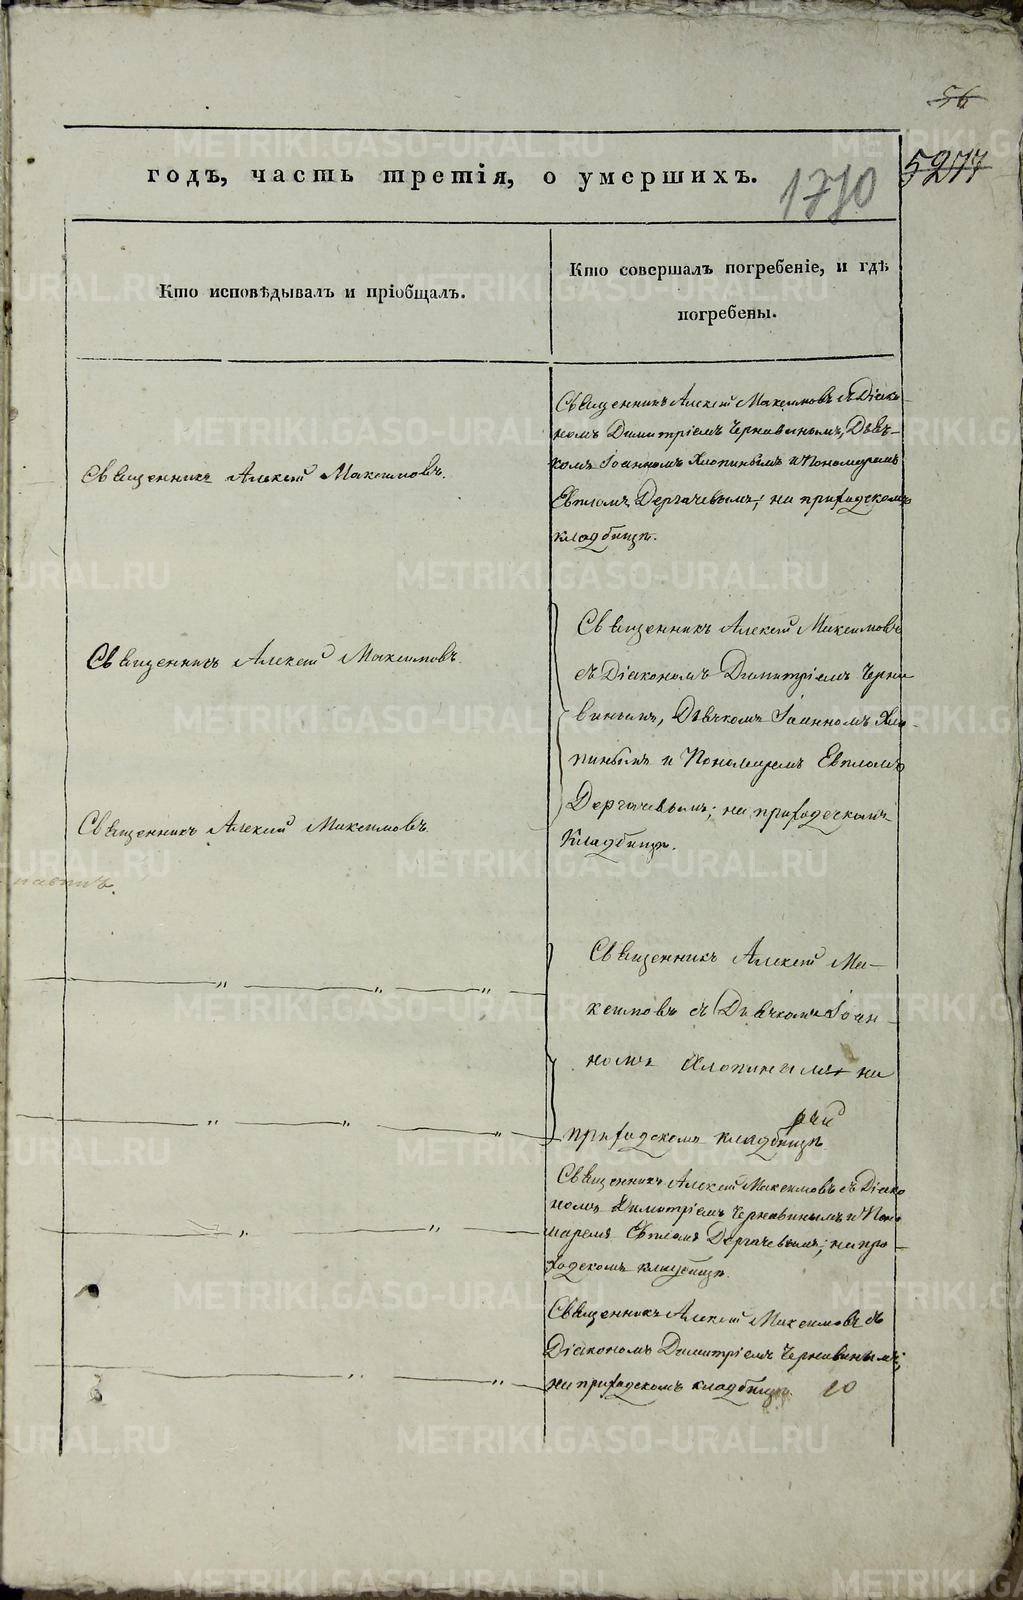 56
годъ, часть третія, о умершихъ.
1710
5277
Кто исповѣдывалъ и пріобщалъ.
Кто совершалъ погребеніе, и гдѣ
погребены.
Священникъ Алексій Максимовъ.
Священникъ Алексій Максимовъ съ Діако-
номъ Димитріемъ Чернавинымъ, Дьяч-
комъ Іоанномъ Хлопинымъ и Пономаремъ
Евпломъ Дергачевымъ; на приходскомъ
кладбищѣ.
Священникъ Алексій Максимовъ.
Священникъ Алексій Максимовъ
съ Діакономъ Димитріемъ Черна
винымъ, Дьячкомъ Іоанномъ Хло-
пинымъ и Пономаремъ Евпломъ
Дергачевымъ; на приходскомъ
Кладбищѣ.
Священникъ Алексій Максимовъ.
Священникъ Алексій Ма-
ксимовъ съ Дьячкомъ Іоан-
номъ Хлопинымъ на
приходскомъ кладбищѣ.
Священникъ Алексій Максимовъ съ Діако
номъ Димитріемъ Чернавинымъ и Поно
маремъ Евпломъ Дергачевымъ; на при-
ходскомъ кладбищѣ.
Священникъ Алексій Максимовъ съ
Діакономъ Димитріемъ Чернавинымъ;
на приходскомъ кладбищѣ.
METRIKI.GASO-URAL.RU